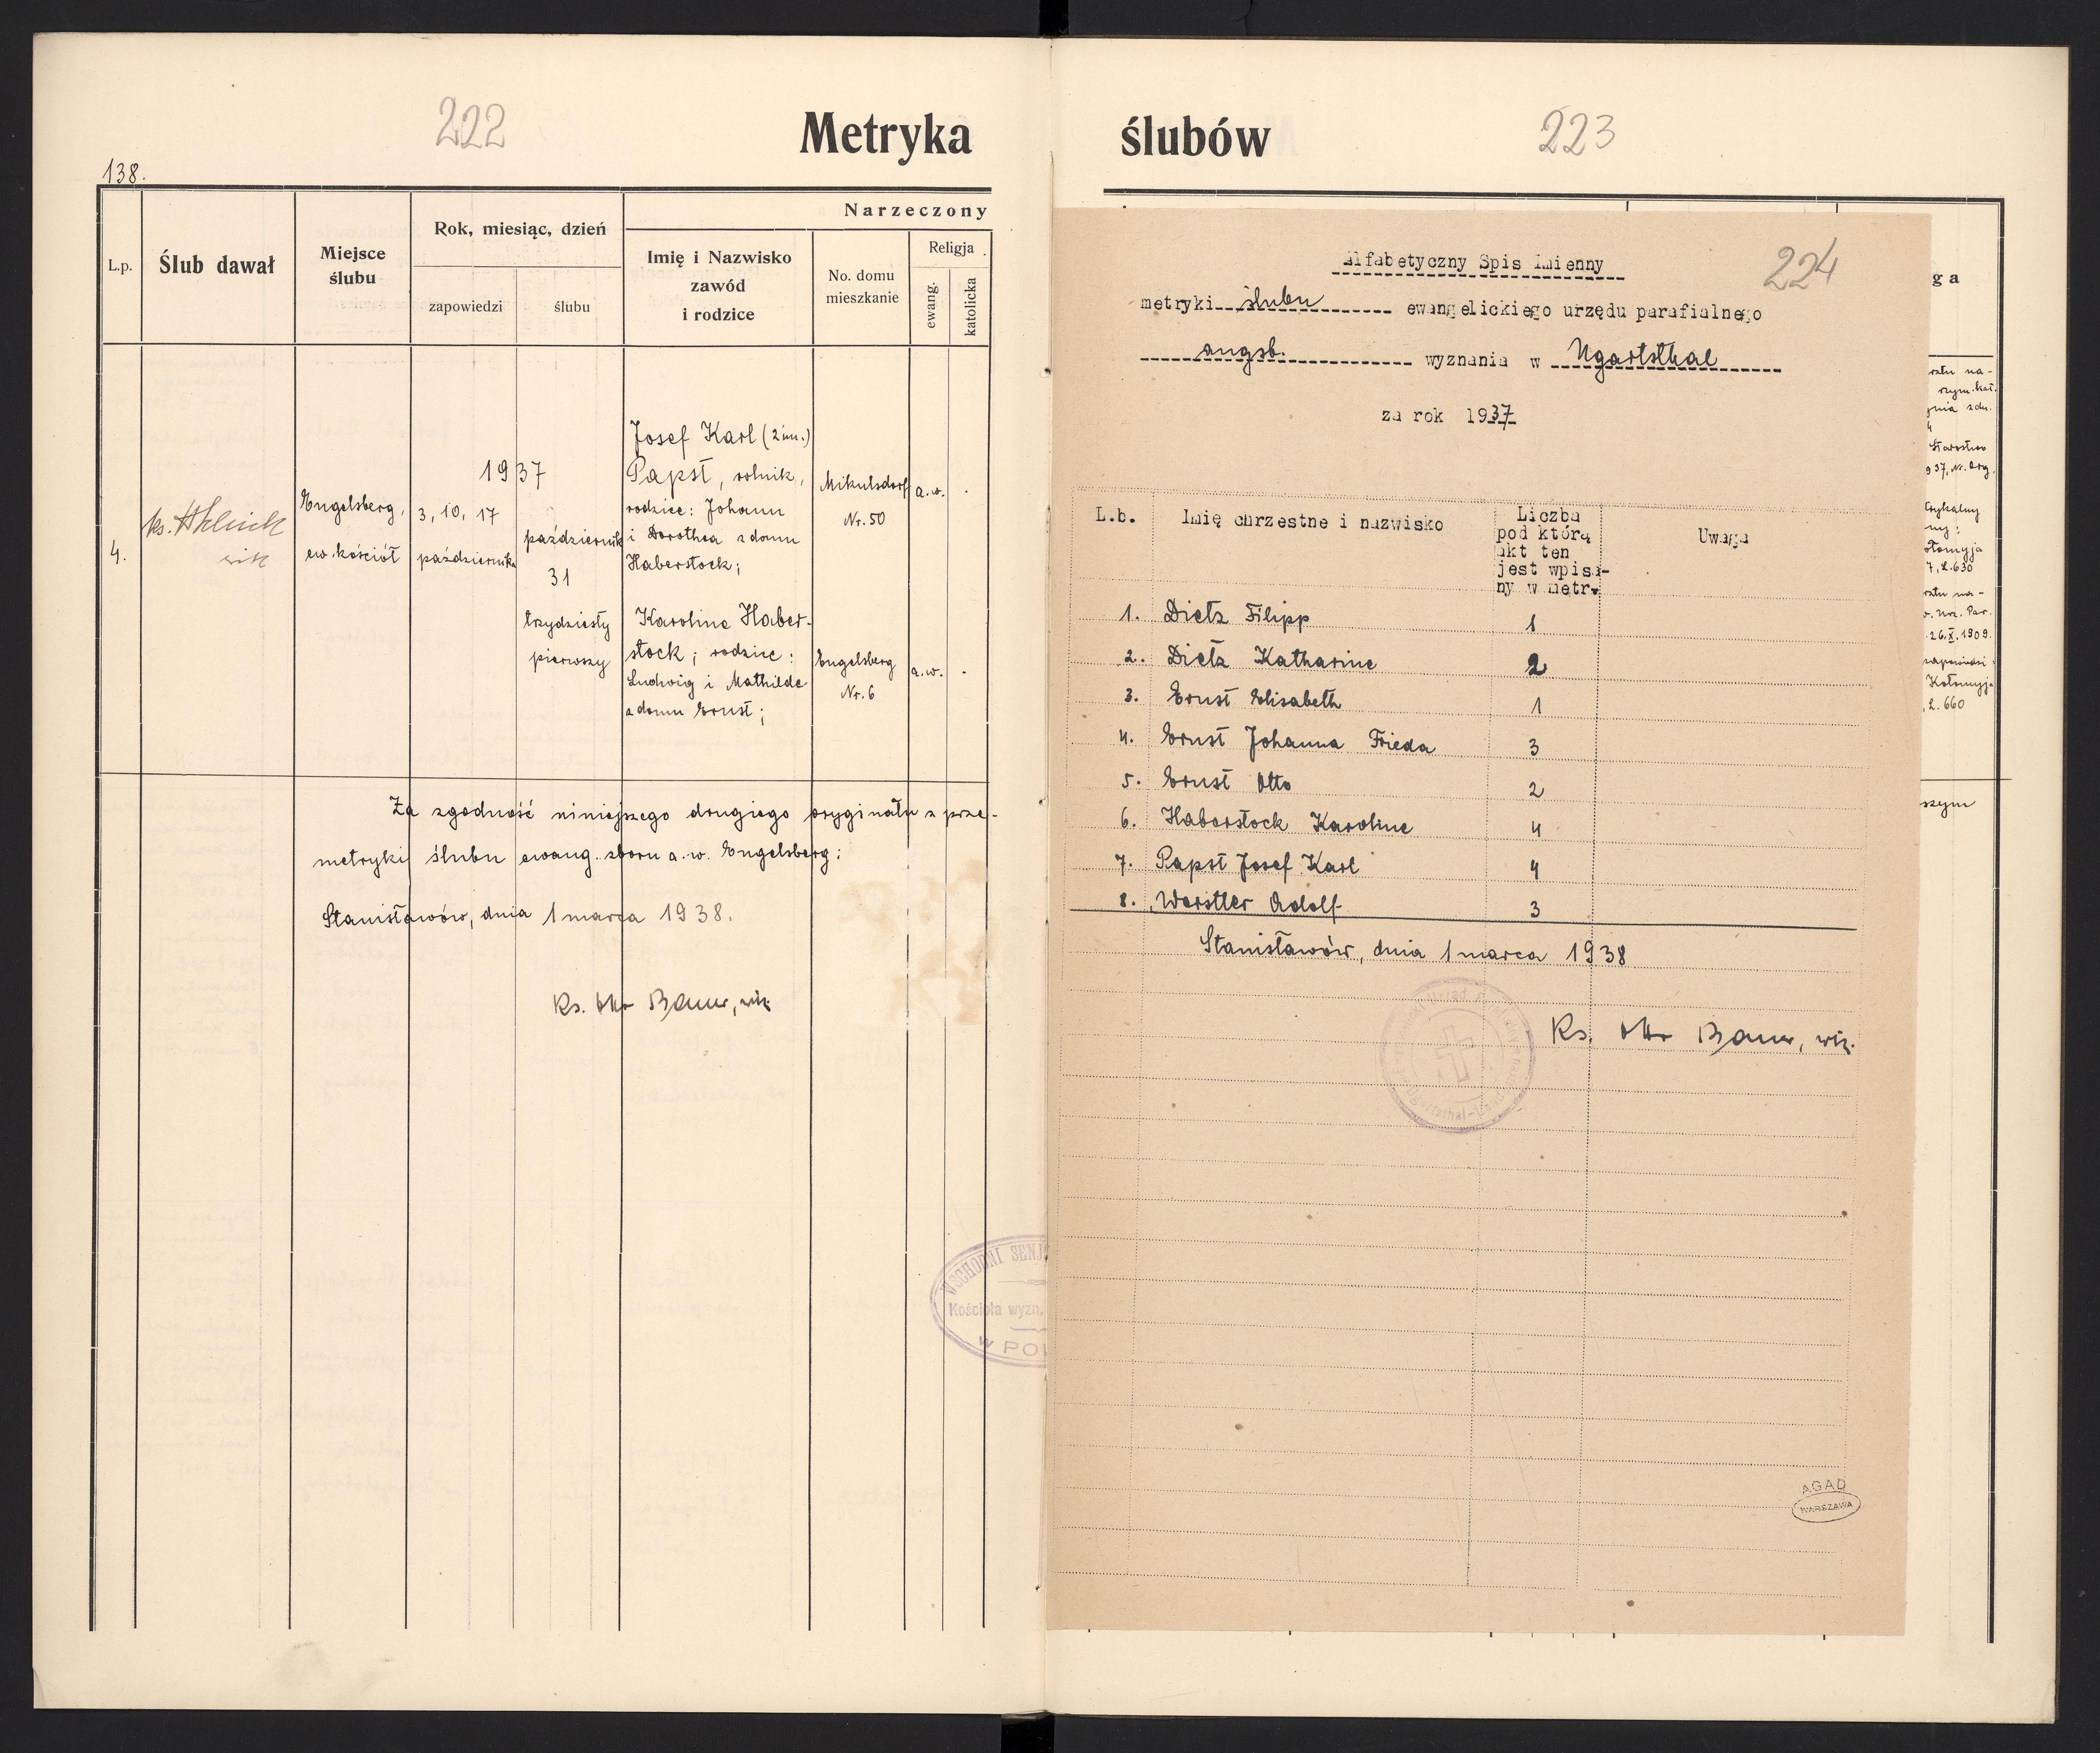 222
Metryka
138.
L.p.
Ślub dawał
Miejsce
ślubu
Rok, miesiąc, dzień
zapowiedzi
ślubu
Narzeczony
Imię i Nazwisko
zawód
i rodzice
No. domu
mieszkanie
Religja
ewang.
katolicka
4.
ks.
wik
Engelsberg,
ew. kościół
1937
3, 10, 17
października
październik
31
trzydziesty
pierwszy
Josef Karl (2 im.)
Papst, rolnik,
rodzice: Johann
i Dorothea z domu
Haberstock;
Mikulsdorf
Nr. 50
a.w.
Karoline Haber-
stock; rodzice:
Ludwig i Mathilde
z domu Ernst;
Engelsberg
Nr. 6
a.w.
Za zgodność niniejszego drugiego oryginału z prze-
metryki ślubu ewang. zboru a.w. Engelsberg:
Stanisławów, dnia 1 marca 1938.
Ks. Otto Bauer, wik.
WSCHODNI SENJ
Kościoła wyzn.
w POL
ślubów
223
224
Alfabetyczny Spis Imienny
metryki ślubu ewangelickiego urzędu parafialnego
augsb. wyznania w Ugartsthal
za rok 1937
L.b.
Imię chrzestne i nazwisko
Liczba
pod którą
akt ten
jest wpisa-
ny w metr.
Uwaga
1. Dietz Filipp 1
2. Dietz Katharine 2
3. Ernst Elisabeth 1
4. Ernst Johanna Frieda 3
5. Ernst Otto 2
6. Haberstock Karoline 4
7. Papst Josef Karl 4
8. Worstler Adolf 3
Stanisławów, dnia 1 marca 1938
Ks. Otto Bauer, wik.
AGAD
WARSZAWA
ga
rztu na-
rzym. kat.
Starostwo
937, Nr. Org.
7, L. 630
26.X.1909.
zapowiedzi
Kołomyja
, L. 660
szym